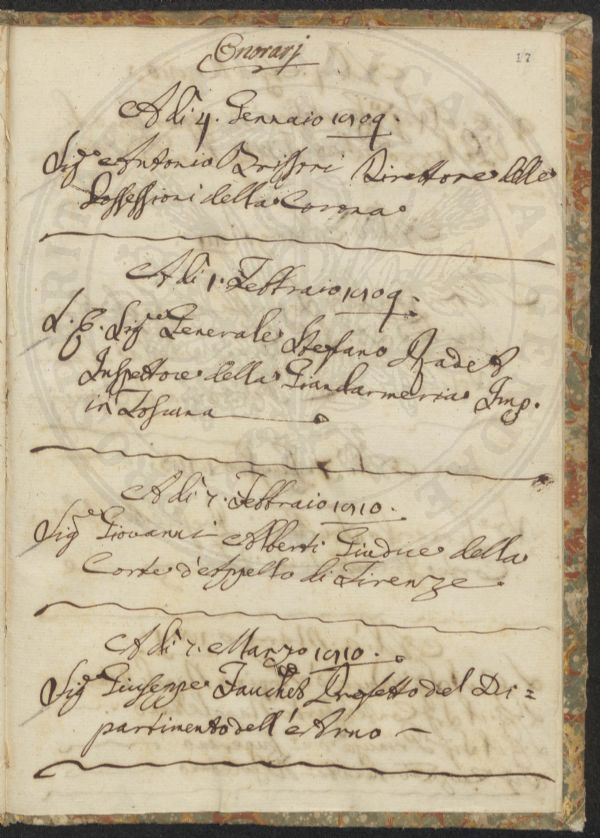 Onorarj
17
A di 4. Gennaio 1809.
Sig.e Antonio Brissoni Direttore delle
Possessioni della Corona
A di 1. Febbraio 1809.
S. E. Sig.e Generale Stefano Radet
Inspettore della Giandarmeria Imp.
in Toscana
A di 7. Febbraio 1810.
Sig.e Giovanni Alberti Giudice della
Corte d'Appello di Firenze
A di 7. Marzo 1810.
Sig.e Giuseppe Fauchet Prefetto del Di=
partimento dell'Arno